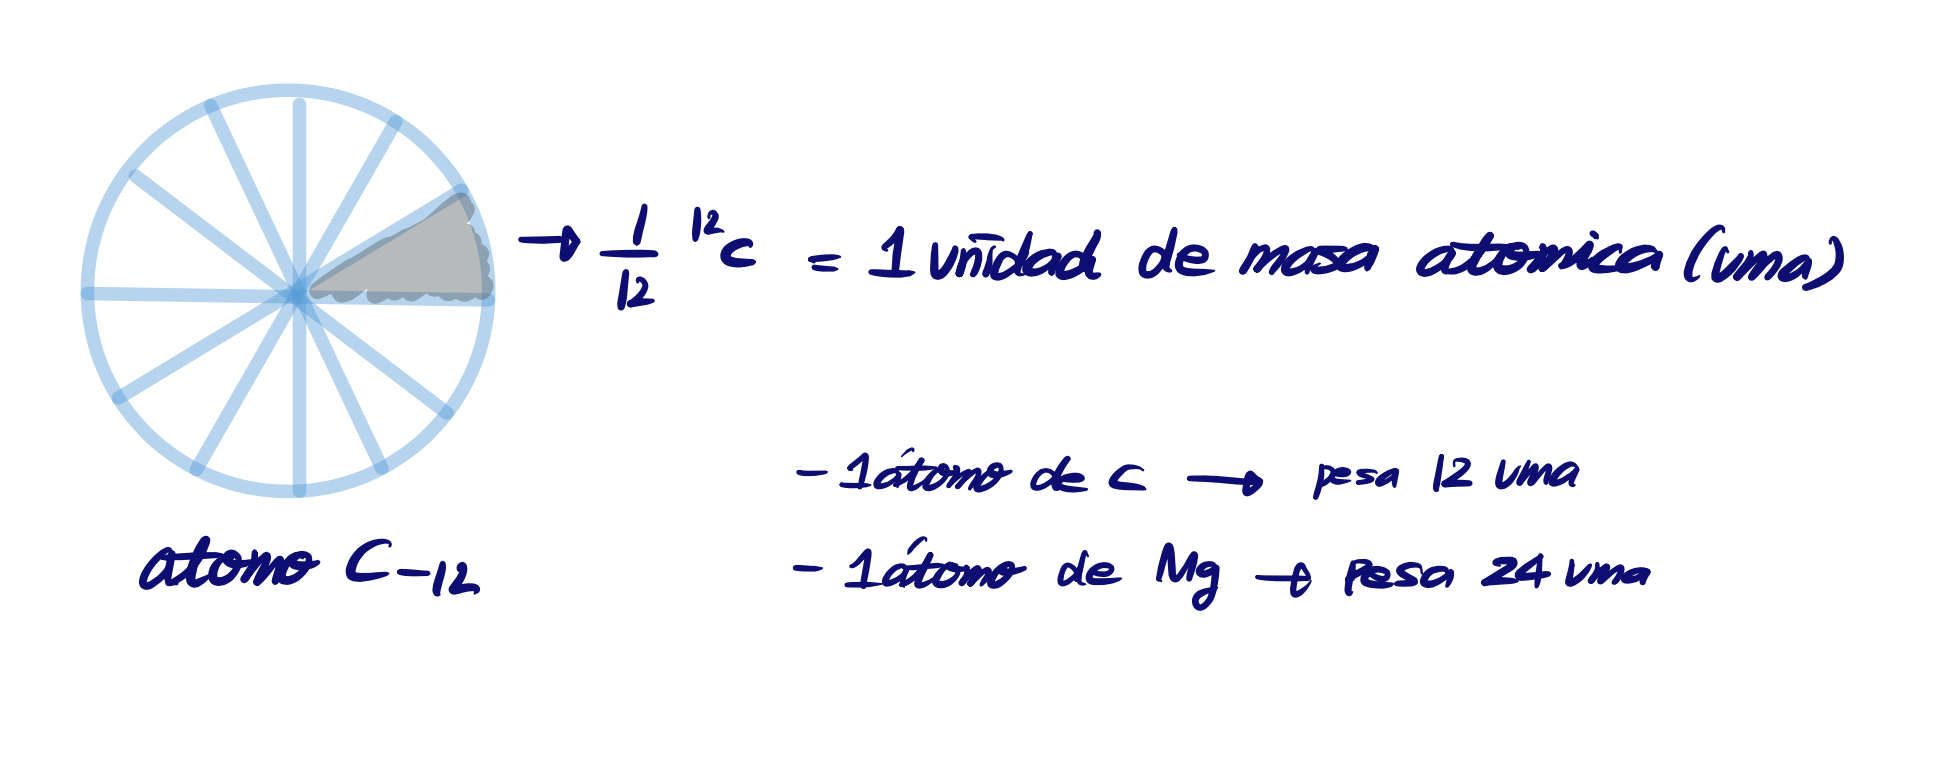 → 1/12 ¹²C = 1 unidad de masa atomica (uma)
- 1 átomo de C → pesa 12 uma
atomo C-12
- 1 átomo de Mg → pesa 24 uma